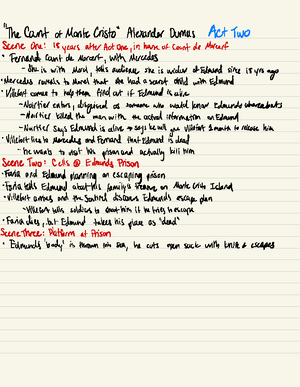 "The Count of Monte Cristo" Alexander Dumas Act Two
Scene One: 18 years after Act One, in home of Count de Morcerf
• Fernand Count de Morcerf, with Mercedes
- She is with Morrel, tells audience she is widow of Edmund since 18 yrs ago
• Mercedes reveals to Morrel that she had a secret child with Edmund
• Villefort comes to help them find out if Edmund is alive
- Noirtier enters, disguised as someone who would know Edmunds whereabouts
- Noirtier killed the man with the actual information on Edmund
- Noirtier says Edmund is alive → says he will give Villefort 3 months to release him
• Villefort lies to Mercedes and Fernand that Edmund is dead
- he wants to visit his prison and actually kill him
Scene Two: Cells @ Edmunds Prison
• Faria and Edmund planning on escaping prison
• Faria tells Edmund about his family's treasure on Monte Cristo Island
• Villefort arrives and the Sentinel discloses Edmunds escape plan
- Villefort tells soldiers to shoot him if he tries to escape
• Faria dies, but Edmund takes his place as "dead"
Scene Three: Platform at Prison
• Edmund's "body" is thrown into sea, he cuts open sack with knife & escapes